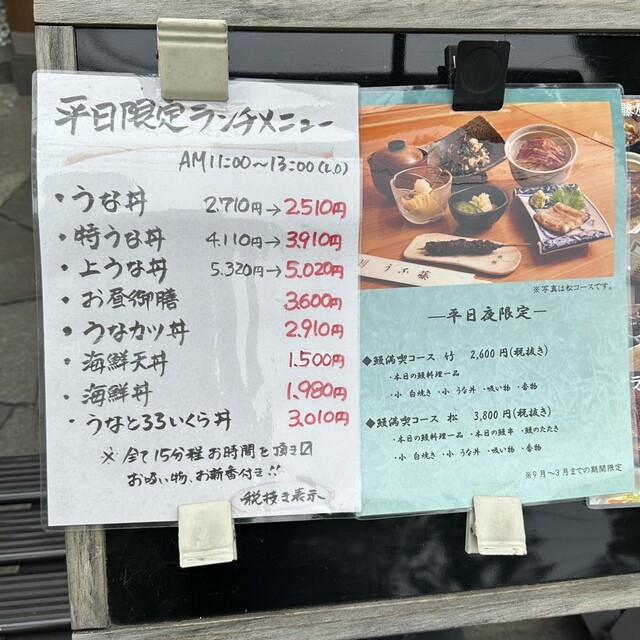 平日限定ランチメニュー
AM11:00〜13:00(L.O)
・うな丼 2.710円→2.510円
・特うな丼 4.110円→3.910円
・上うな丼 5.320円→5.020円
・お昼御膳 3.600円
・うなカツ丼 2.910円
・海鮮天丼 1.500円
・海鮮丼 1.980円
・うなとろろいくら丼 3.010円
※全て15分程お時間を頂きます
お吸い物、お新香付き!!
税抜き表示
※写真は松コースです。
―平日夜限定―
◆鰻満喫コース 竹 2,600円(税抜き)
・本日の鰻料理一品
・小 白焼き ・小 うな丼 ・吸い物 ・香物
◆鰻満喫コース 松 3,800円(税抜き)
・本日の鰻料理一品 ・本日の鰻串 ・鰻のたたき
・小 白焼き ・小 うな丼 ・吸い物 ・香物
※9月〜3月までの期間限定